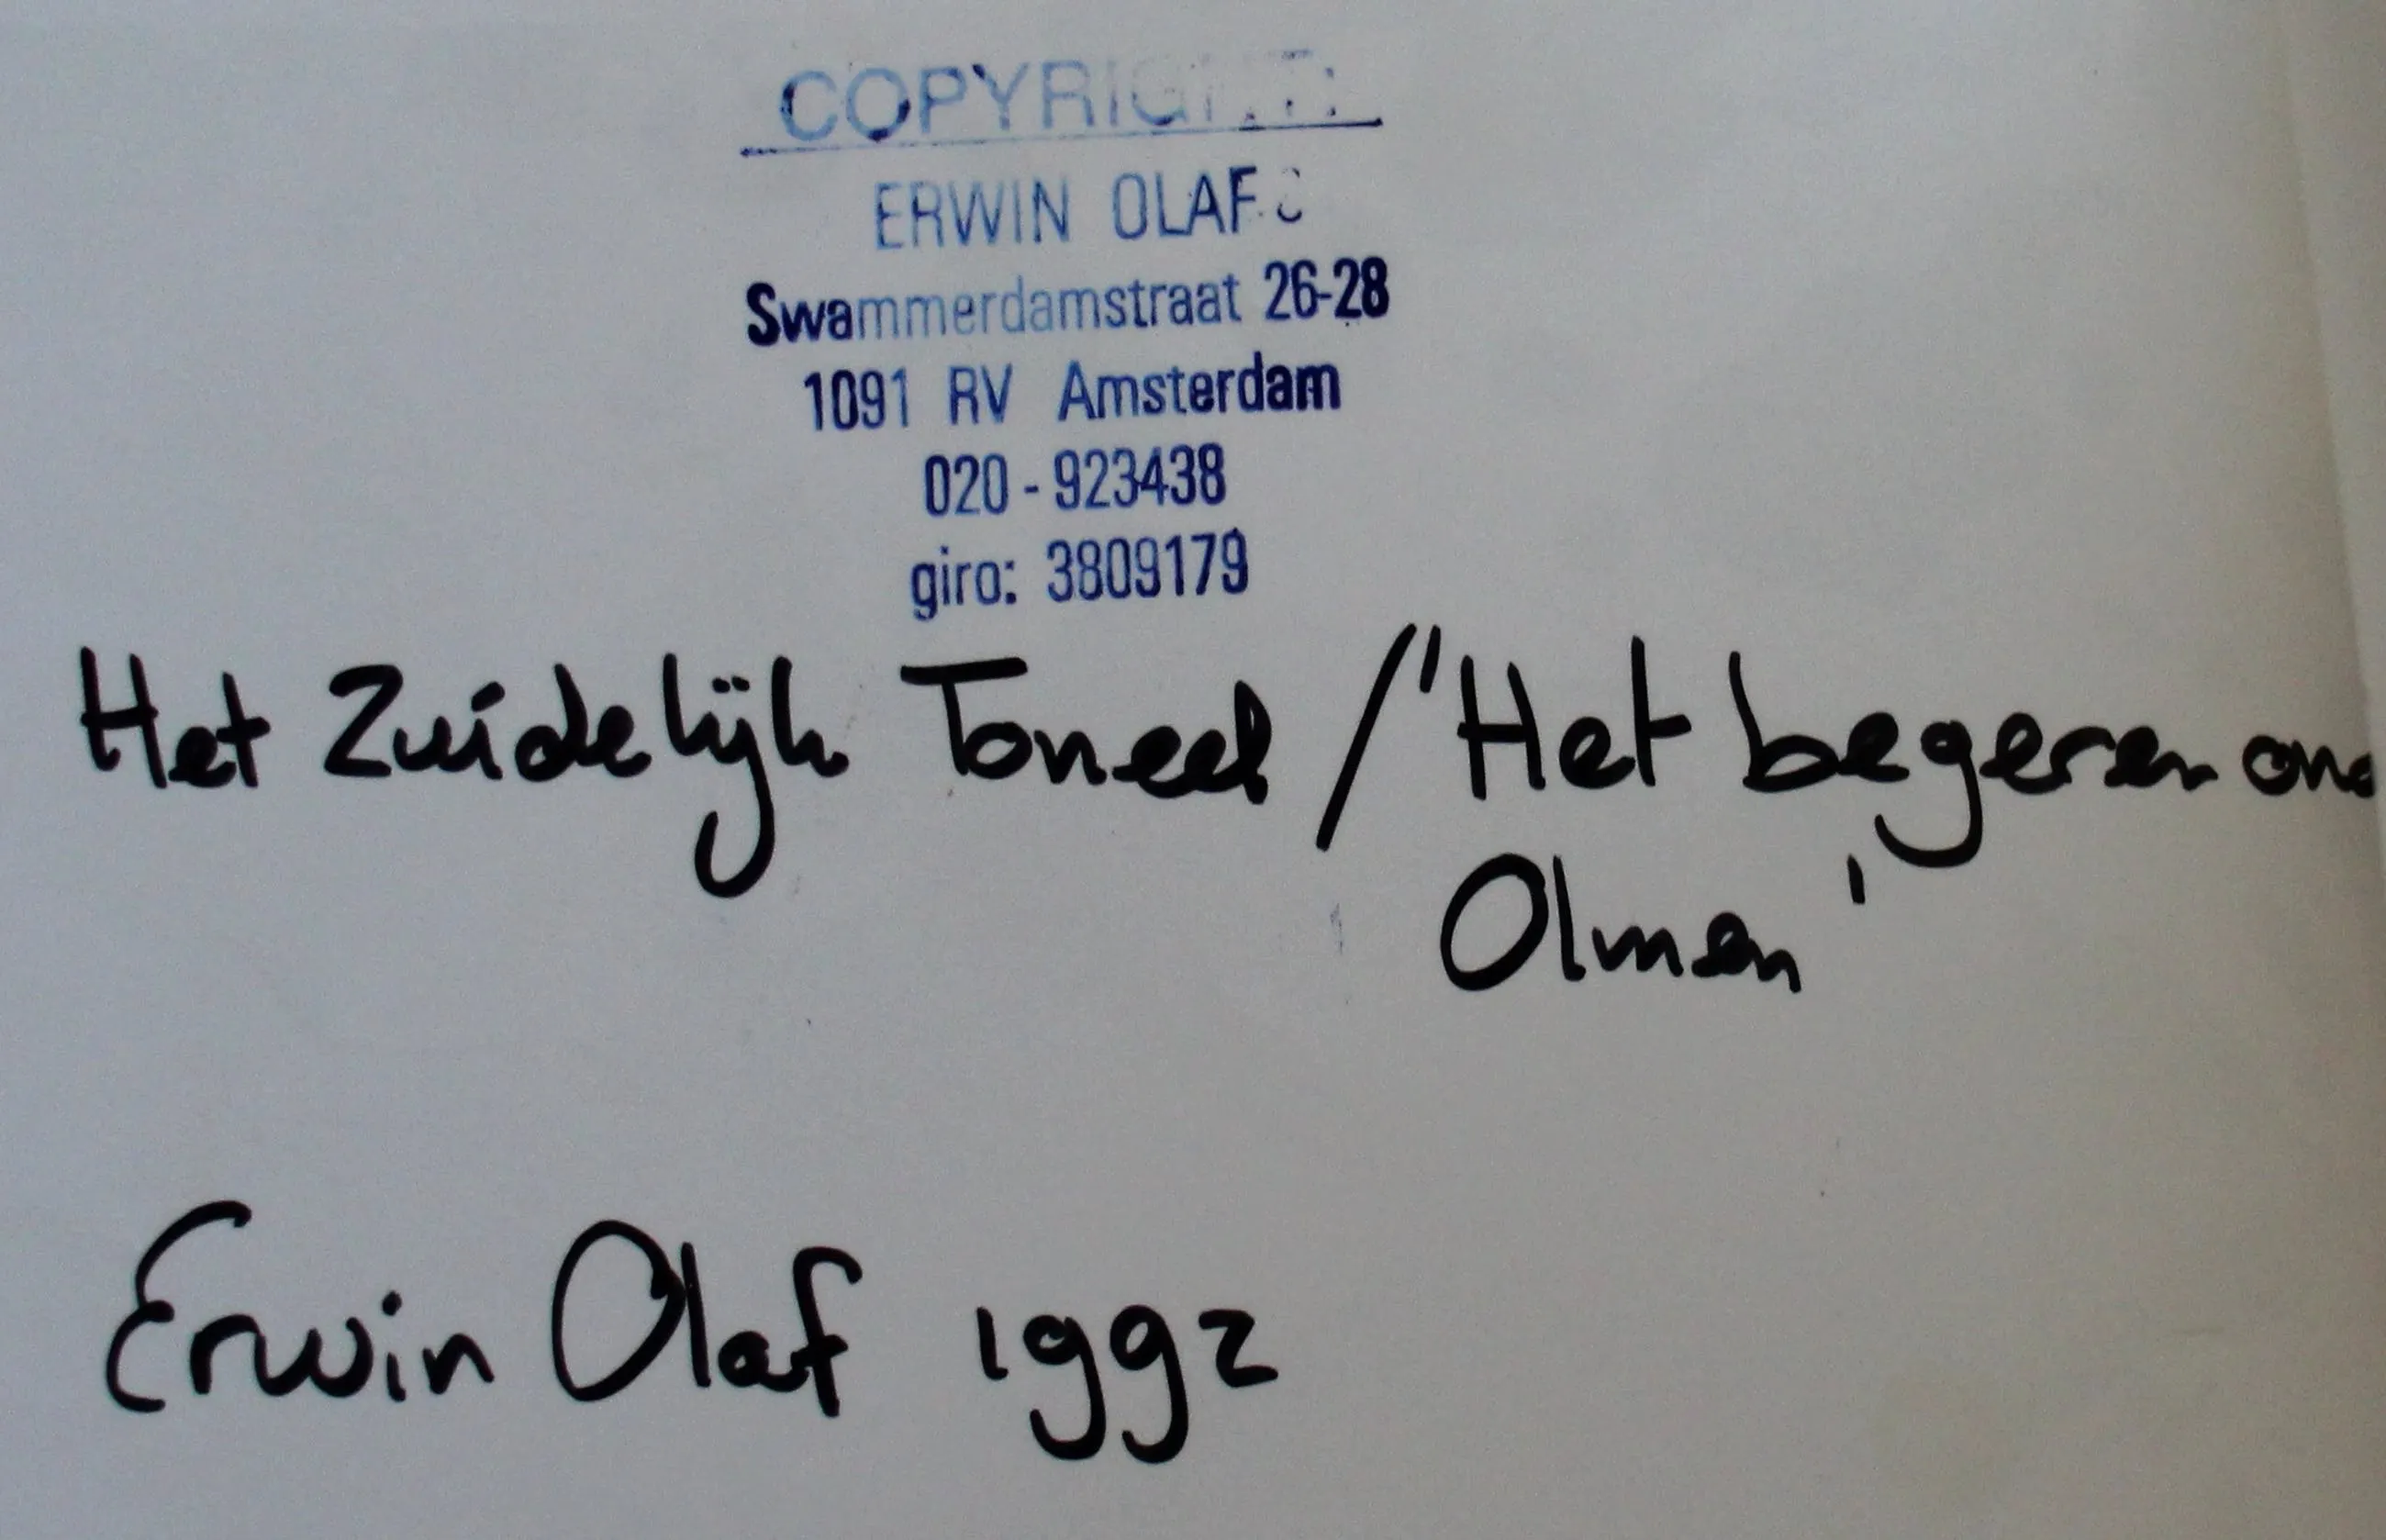 COPYRIGHT:
ERWIN OLAF
Swammerdamstraat 26-28
1091 RV Amsterdam
020 - 923438
giro: 3809179
Het Zuidelijk Toneel / 'Het begeren ond
Olmen'
Erwin Olaf 1992